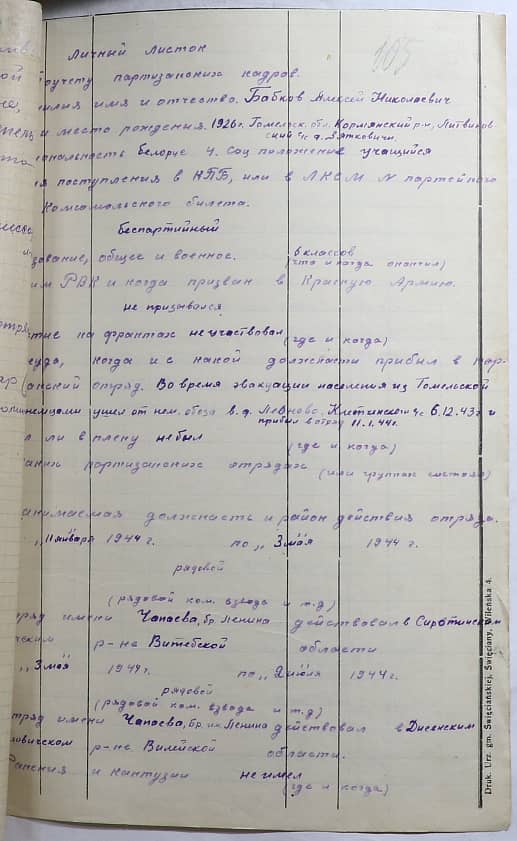 105
Личный листок
по учету партизанских кадров.
милия имя и отчество. Бабков Алексей Николаевич
и место рождения. 1926 г. Гомельск. обл. Кормянский р-н, Литвинов
ский с/с д. Зятковичи
иональность белорус 4. Соц положение учащийся
я поступления в КПБ, или в ЛКСМ N партейного
Комсомольского билета.
беспартийный
зование, общее и военное. 6 классов
(что и когда окончил)
им РВК и когда призван в Красную Армию.
не призывался
тие на фронтах не участвовал (где и когда)
куда, когда и с какой должности прибыл в пар-
анский отряд. Во время эвакуации населения из Гомельской
немцами ушел от нем. обоза в д. 6.12.43 г и
прибыл в отряд 11.1.44 г.
л ли в плену не был (где и когда)
аких партизанских отрядах (или группах состоял)
анимаемая должность и район действия отряда.
„11 января 1944 г. по „3 мая 1944 г.
рядовой
(рядовой ком. взвода и т.д)
ряд имени Чапаева, бр. Ленина действовал в Сиротинском
р-не Витебской области
„3 мая 1944 г. по „2 июля 1944 г.
рядовой
(рядовой ком. взвода и т.д)
тряд имени Чапаева, бр. им. Ленина действовал в Дисенским
р-не Вилейской области.
Ранения и контузии не имел
(где и когда)
Druk. Urz. gm. Święciańskiej, Święciany, Wileńska 4.